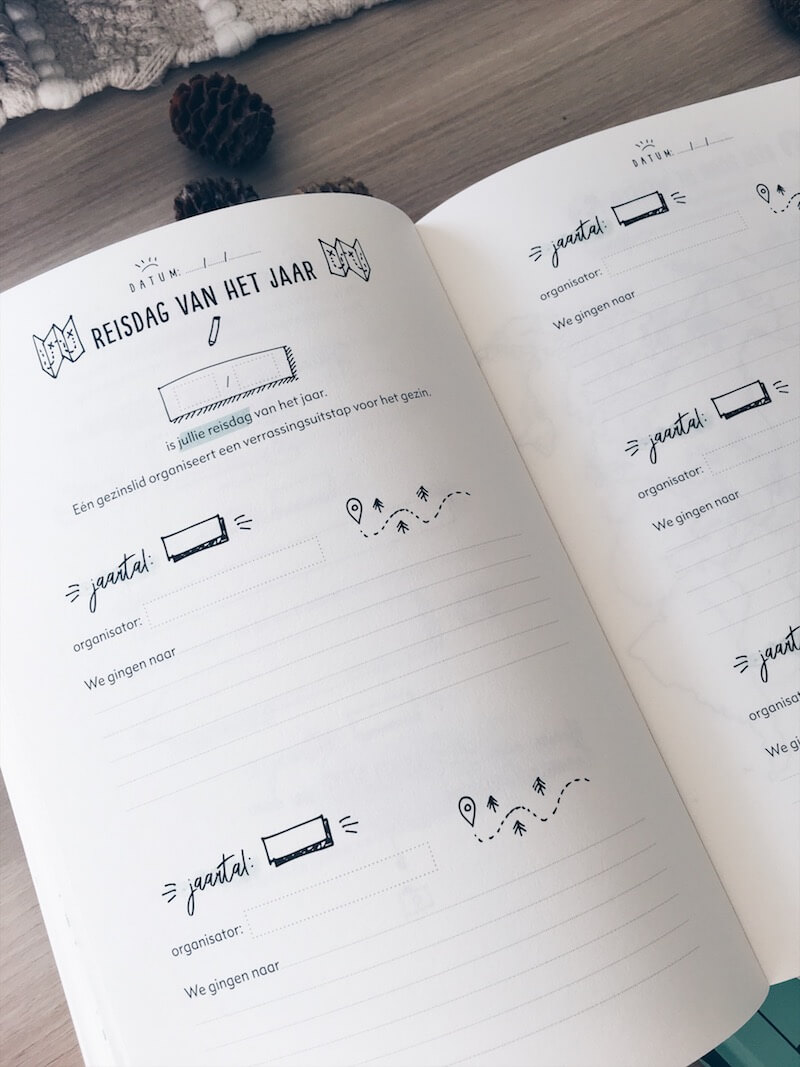 DATUM: / /
REISDAG VAN HET JAAR
/
is jullie reisdag van het jaar.
Eén gezinslid organiseert een verrassingsuitstap voor het gezin.
jaartal:
organisator:
We gingen naar
jaartal:
organisator:
We gingen naar
DATUM: / /
jaartal:
organisator:
We gingen naar
jaartal:
organisator:
We gingen naar
jaart
organisa
We gi